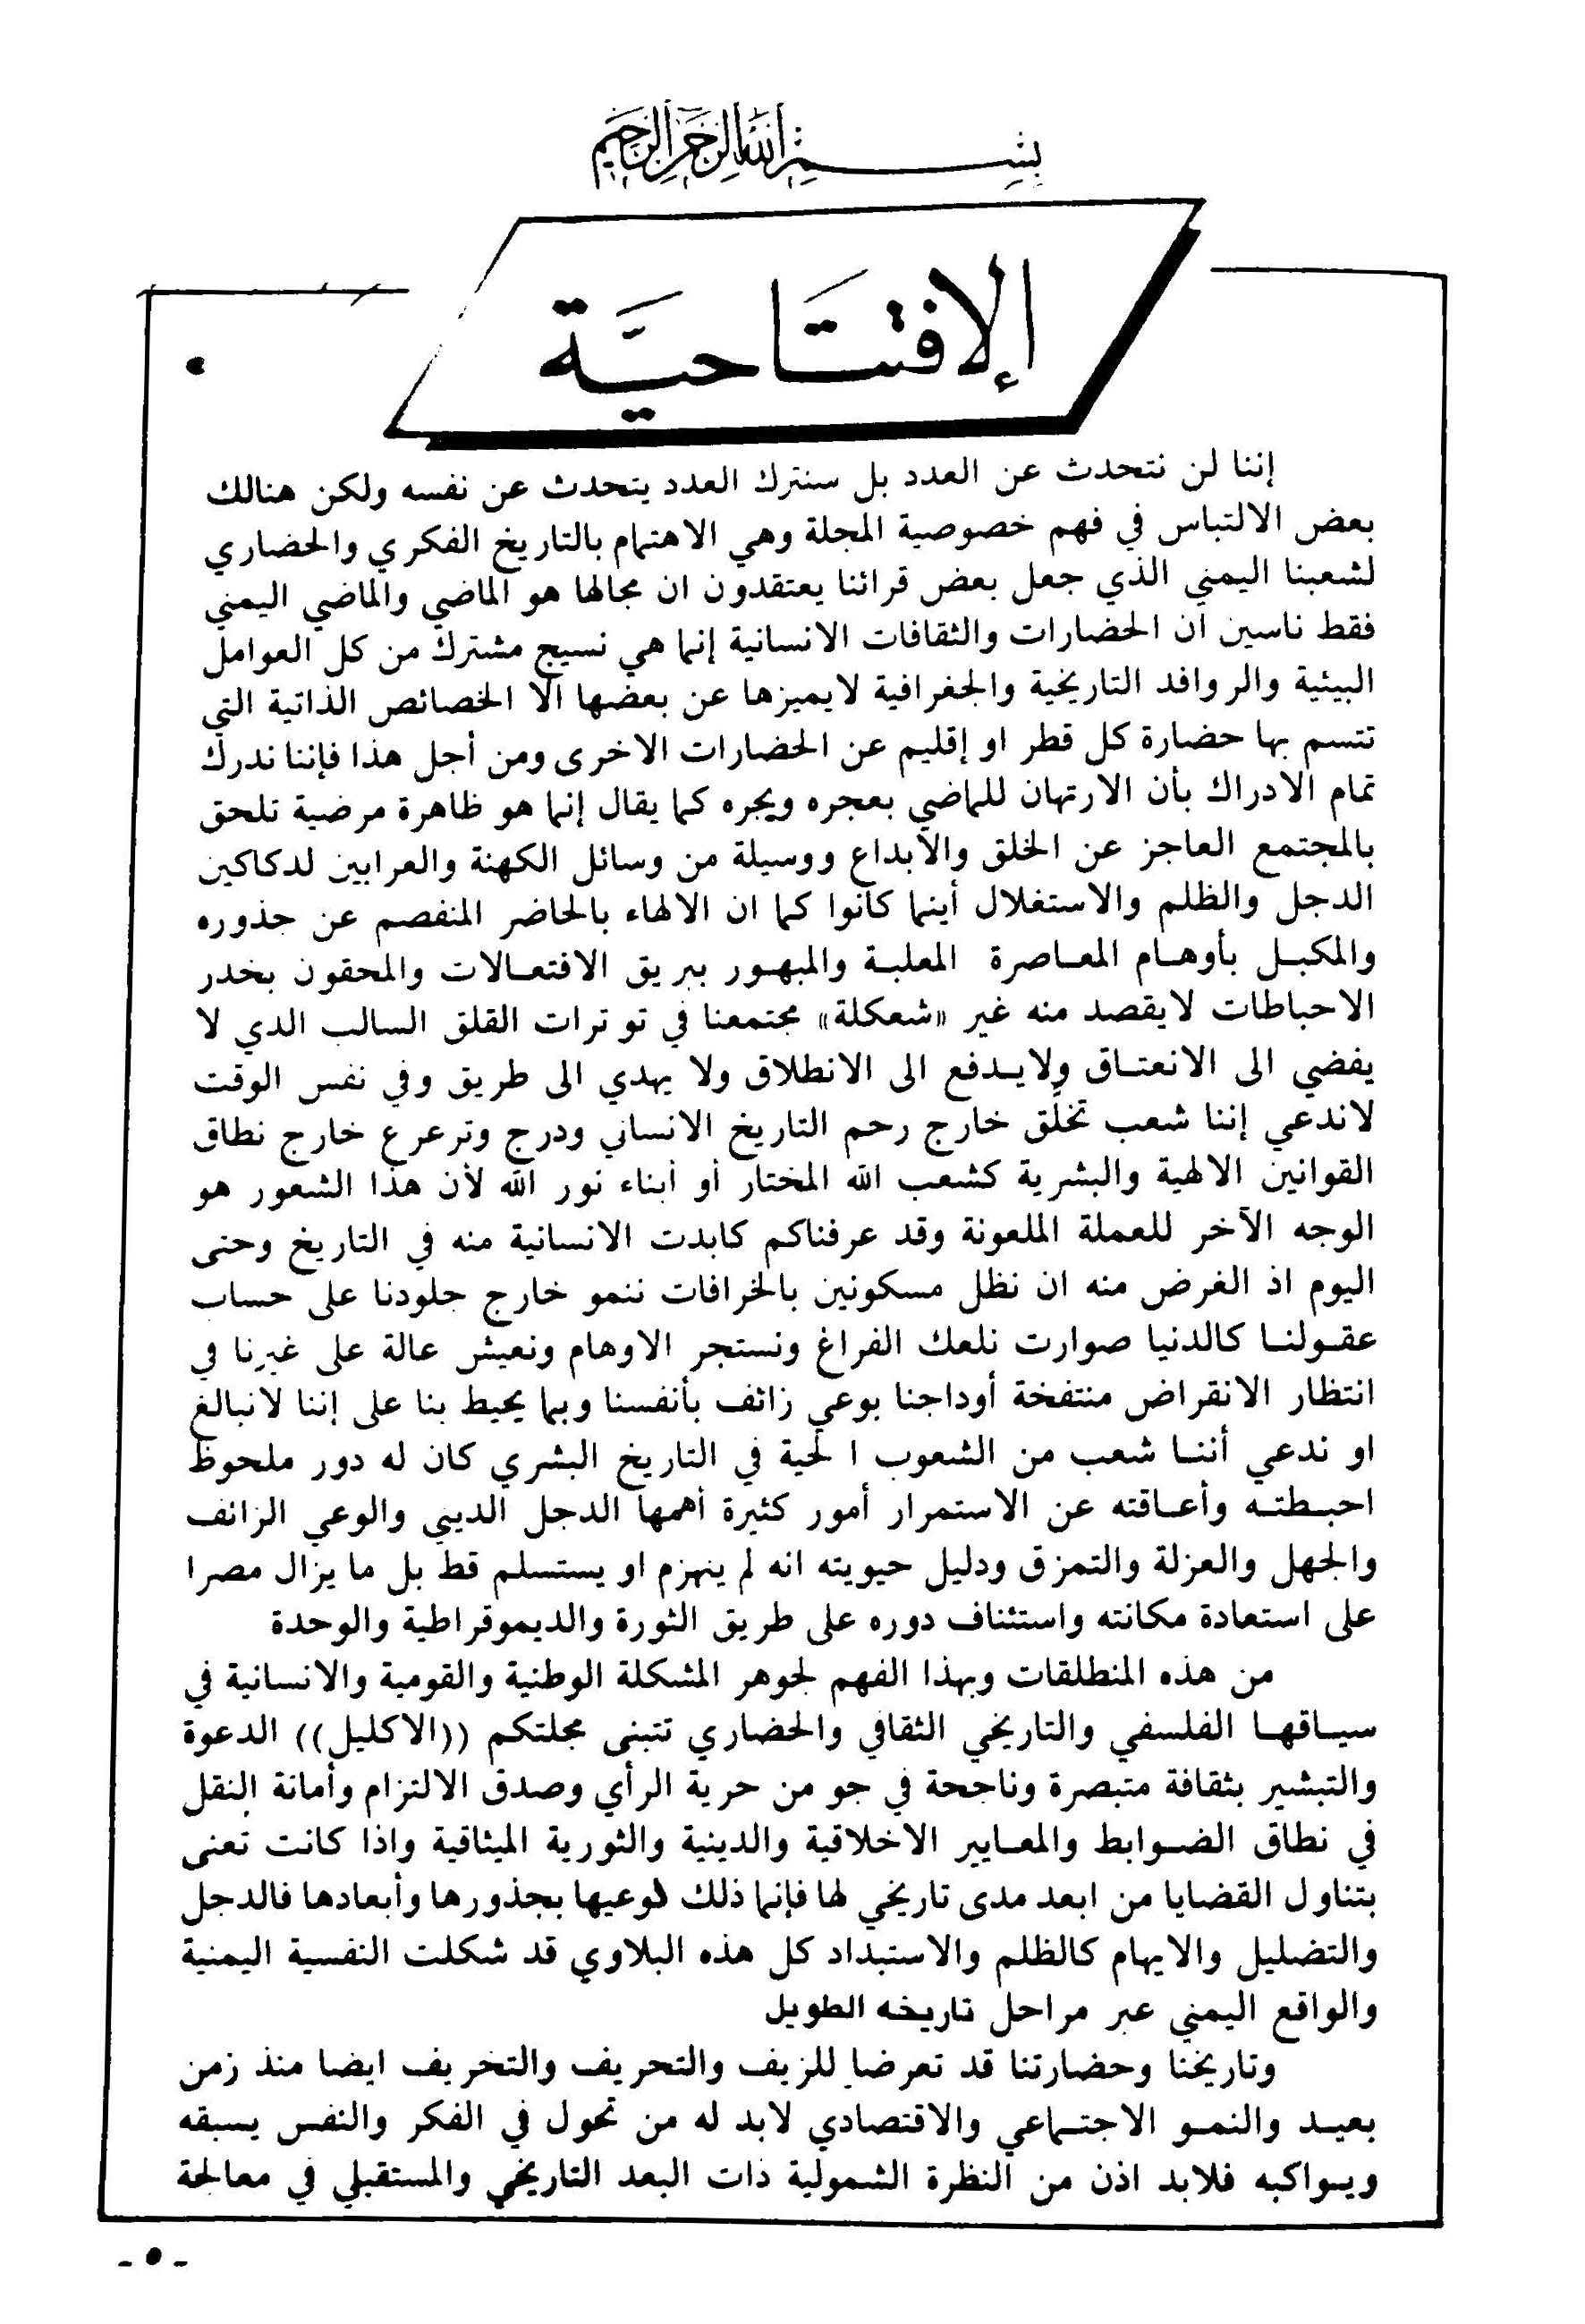 بسم الله الرحمن الرحيم
الإفتتاحية
إننا لن نتحدث عن العدد بل سنترك العدد يتحدث عن نفسه ولكن هنالك
بعض الالتباس في فهم خصوصية المجلة وهي الاهتمام بالتاريخ الفكري والحضاري
لشعبنا اليمني الذي جعل بعض قرائنا يعتقدون ان مجالها هو الماضي والماضي اليمني
فقط ناسين ان الحضارات والثقافات الانسانية إنما هي نسيج مشترك من كل العوامل
البيئية والروافد التاريخية والجغرافية لايميزها عن بعضها الا الخصائص الذاتية التي
تتسم بها حضارة كل قطر او إقليم عن الحضارات الاخرى ومن أجل هذا فإننا ندرك
تمام الادراك بأن الارتهان للماضي بعجره وبجره كما يقال إنما هو ظاهرة مرضية تلحق
بالمجتمع العاجز عن الخلق والابداع ووسيلة من وسائل الكهنة والعرابين لدكاكين
الدجل والظلم والاستغلال أينما كانوا كما ان الالهاء بالحاضر المنفصم عن جذوره
والمكبل بأوهام المعاصرة المعلبة والمبهور ببريق الافتعالات والمحقون بخدر
الاحباطات لايقصد منه غير «شعكلة» مجتمعنا في توترات القلق السالب الدي لا
يفضي الى الانعتاق ولايدفع الى الانطلاق ولا يهدي الى طريق وفي نفس الوقت
لاندعي إننا شعب تخلّق خارج رحم التاريخ الانساني ودرج وترعرع خارج نطاق
القوانين الالهية والبشرية كشعب الله المختار أو أبناء نور الله لأن هذا الشعور هو
الوجه الآخر للعملة الملعونة وقد عرفناكم كابدت الانسانية منه في التاريخ وحتى
اليوم اذ الغرض منه ان نظل مسكونين بالخرافات ننمو خارج جلودنا على حساب
عقولنا كالدنيا صوارت نلعك الفراغ ونستجر الاوهام ونعيش عالة على غيرنا في
انتظار الانقراض منتفخة أوداجنا بوعي زائف بأنفسنا وبما يحيط بنا على إننا لانبالغ
او ندعي أننا شعب من الشعوب ا لحية في التاريخ البشري كان له دور ملحوظ
احبطته وأعاقته عن الاستمرار أمور كثيرة أهمها الدجل الديني والوعي الزائف
والجهل والعزلة والتمزق ودليل حيويته انه لم ينهزم او يستسلم قط بل ما يزال مصرا
على استعادة مكانته واستئناف دوره على طريق الثورة والديموقراطية والوحدة
من هذه المنطلقات وبهذا الفهم لجوهر المشكلة الوطنية والقومية والانسانية في
سياقها الفلسفي والتاريخي الثقافي والحضاري تتبنى مجلتكم ((الاكليل)) الدعوة
والتبشير بثقافة متبصرة وناجحة في جو من حرية الرأي وصدق الالتزام وأمانة النقل
في نطاق الضوابط والمعايير الاخلاقية والدينية والثورية الميثاقية واذا كانت تعنى
بتناول القضايا من ابعد مدى تاريخي لها فإنما ذلك لوعيها بجذورها وأبعادها فالدجل
والتضليل والايهام كالظلم والاستبداد كل هذه البلاوي قد شكلت النفسية اليمنية
والواقع اليمني عبر مراحل تاريخه الطويل
وتاريخنا وحضارتنا قد تعرضا للزيف والتحريف والتخريف ايضا منذ زمن
بعيد والنمو الاجتماعي والاقتصادي لابد له من تحول في الفكر والنفس يسبقه
ويواكبه فلابد اذن من النظرة الشمولية ذات البعد التاريخي والمستقبلي في معالجة
- ٥ -